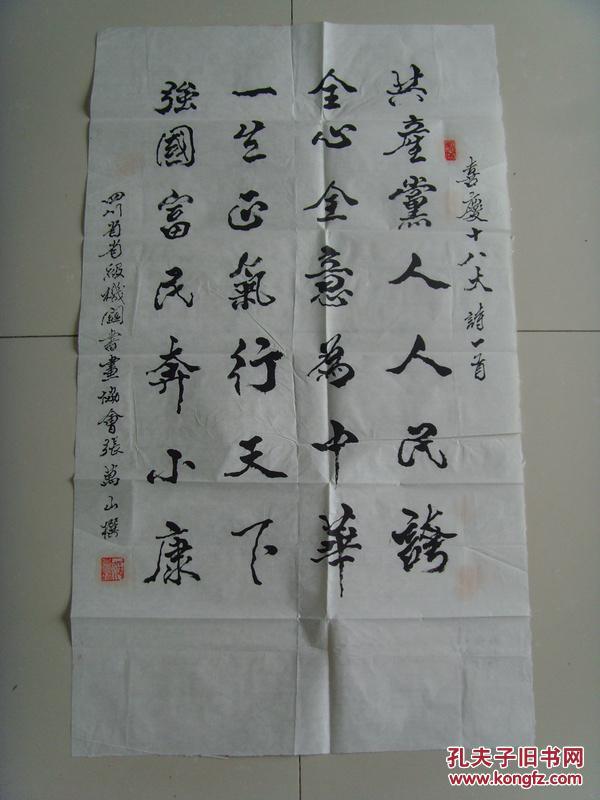 喜慶十八大詩一首
共產黨人人民誇
全心全意為中華
一生正氣行天下
強國富民奔小康
四川省省級機關書畫協會張萬山撰
孔夫子旧书网
www.kongfz.com